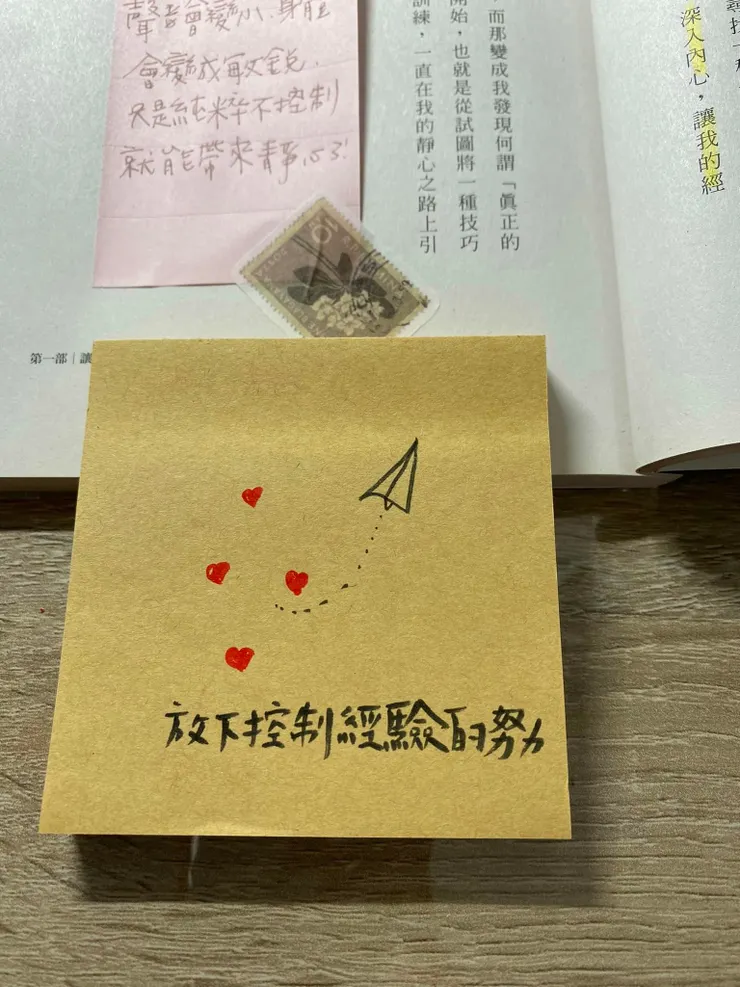 聲音會變小.身體
會變成敏銳.
只是純粹不控制
就能帶來靜心了!
，而那變成我發現何謂「真正的
開始，也就是從試圖將一種技巧
訓練，一直在我的靜心之路上引
深入內心，讓我的經
第一部｜讓
放下控制經驗的努力